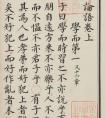 論語卷上
學而第一
子曰學而時習之不亦說乎
朋自遠方來不亦樂乎
而不慍不亦君子乎有子
其為人也孝弟而好犯上
矣不好犯上而好作亂者